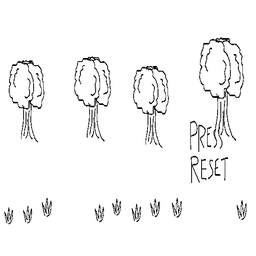 PRESS
RESET